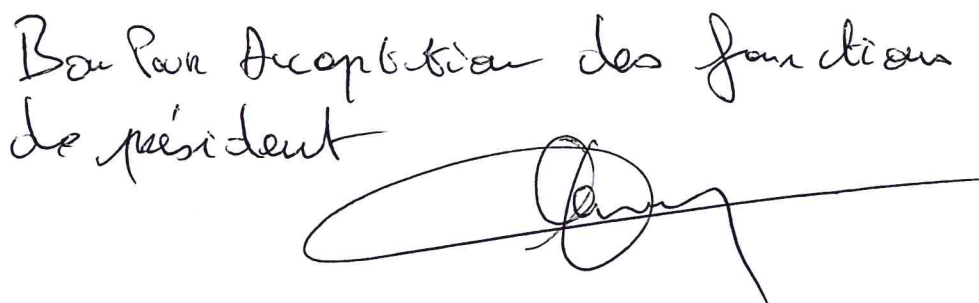 Bon Pour Acceptation des fonctions
de président